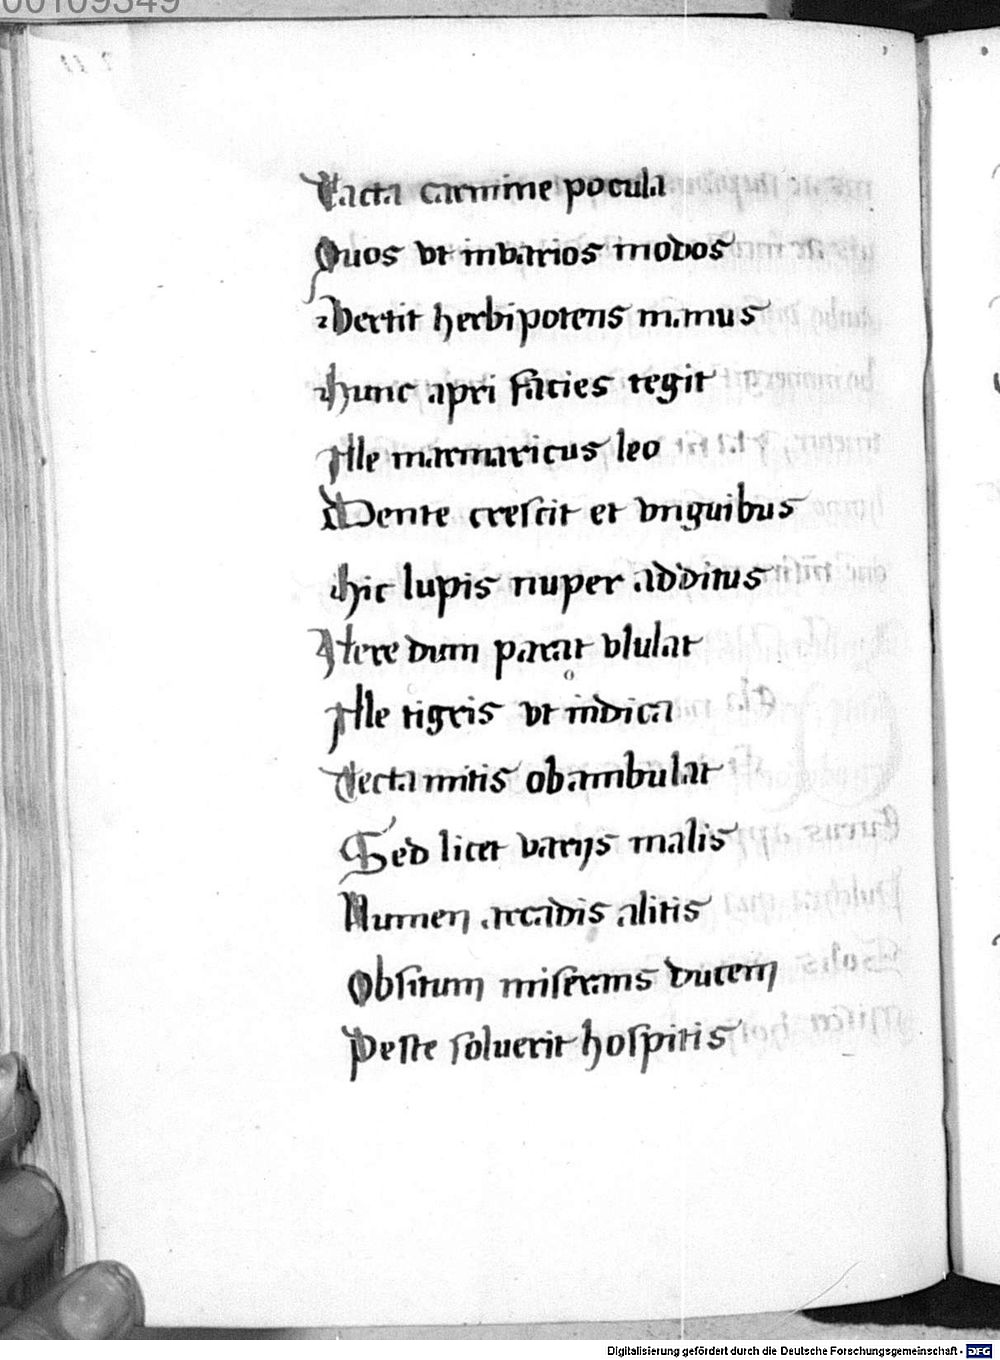 00109349
Tacta carmine pocula
Quos vt in varios modos
Vertit herbipotens mmus
hunc apri facies tegit
Ille marmaricus leo
Dente crescit et vnguibus
hic lupis nuper additus
Flere dum parat vlulat
Ille tigris vt indica
Tecta mitis obambulat
Sed licet varijs malis
Numen arcadis alitis
Obsitum miserans ducem
Peste soluerit hospitis
Digitalisierung gefördert durch die Deutsche Forschungsgemeinschaft - DFG